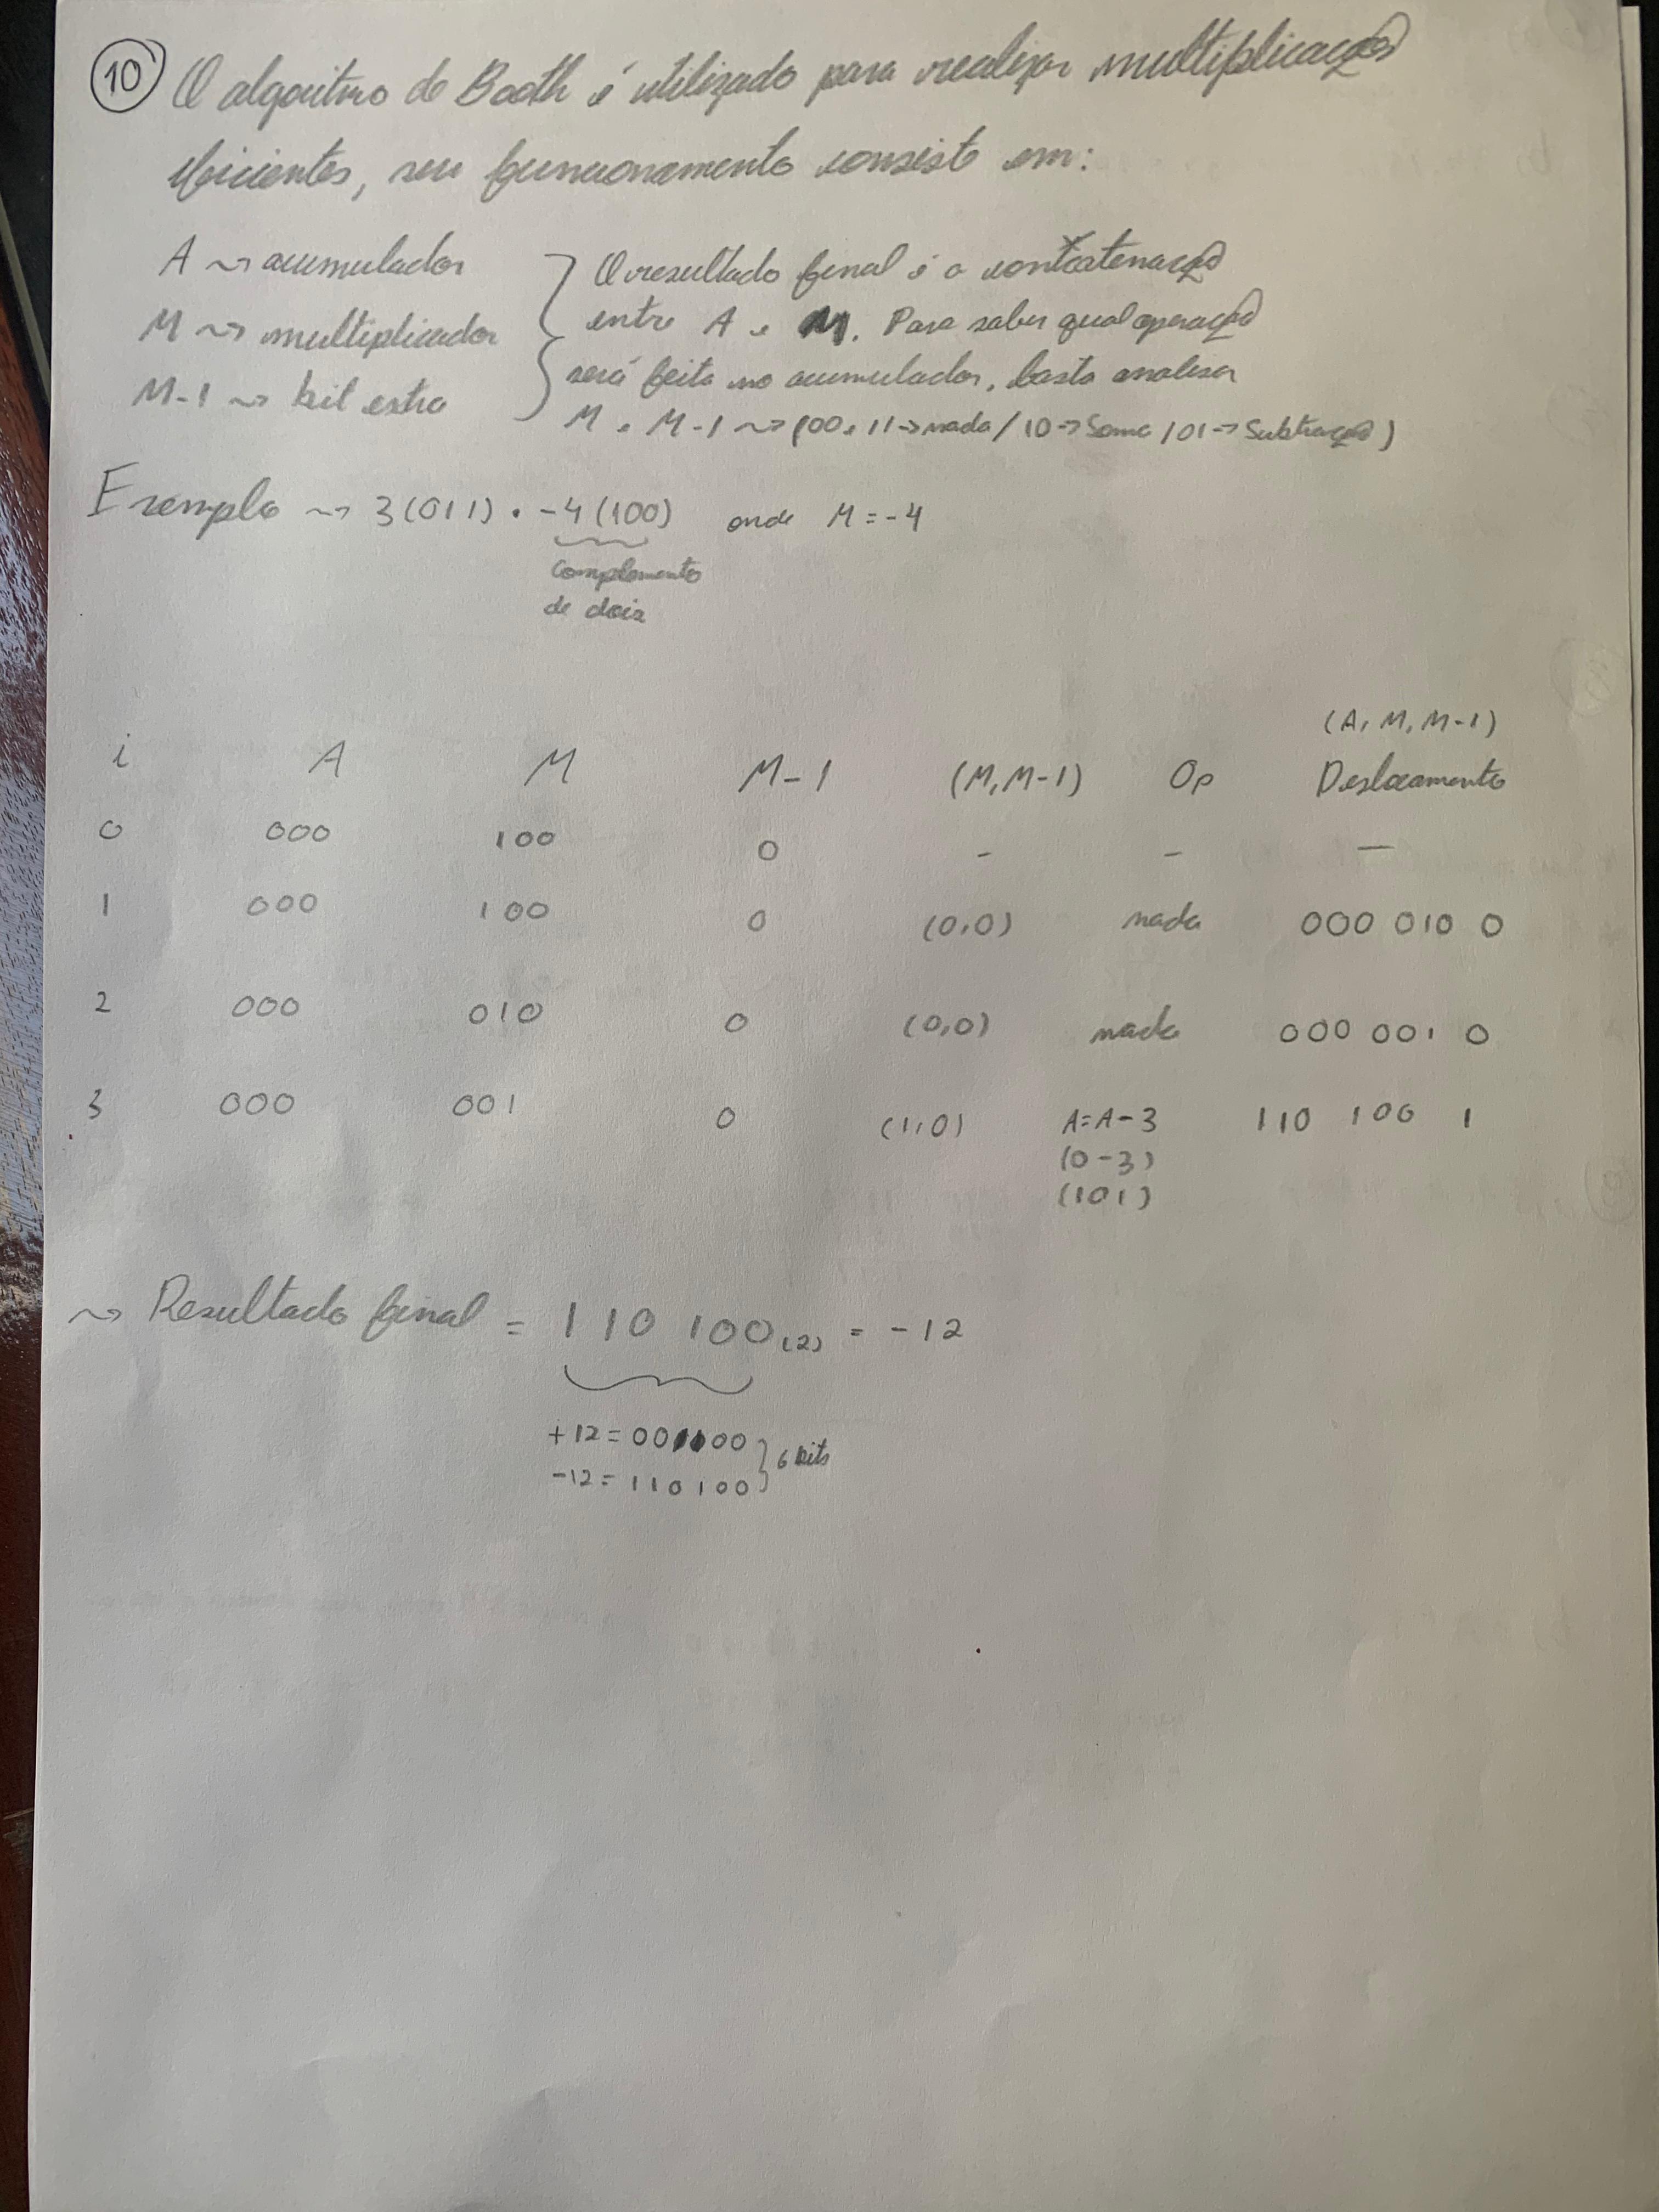 10) O algoritmo de Booth é utilizado para realizar multiplicações
eficientes, seu funcionamento consiste em:
A ~> acumulador
M ~> multiplicador
M-1 ~> bit extra
O resultado final é a concatenação
entre A e M. Para saber qual operação
será feita no acumulador, basta analisar
M e M-1 ~> (00 e 11 -> nada / 10 -> Soma / 01 -> Subtração)
Exemplo ~> 3(011) . -4(100) onde M = -4
Complemento
de dois
(A, M, M-1)
i A M M-1 (M, M-1) Op Deslocamento
0 000 100 0 - - -
1 000 100 0 (0,0) nada 000 010 0
2 000 010 0 (0,0) nada 000 001 0
3 000 001 0 (1,0) A=A-3 110 100 1
(0-3)
(101)
~> Resultado final = 110 100(2) = -12
+12 = 001100
-12 = 110100
6 bits